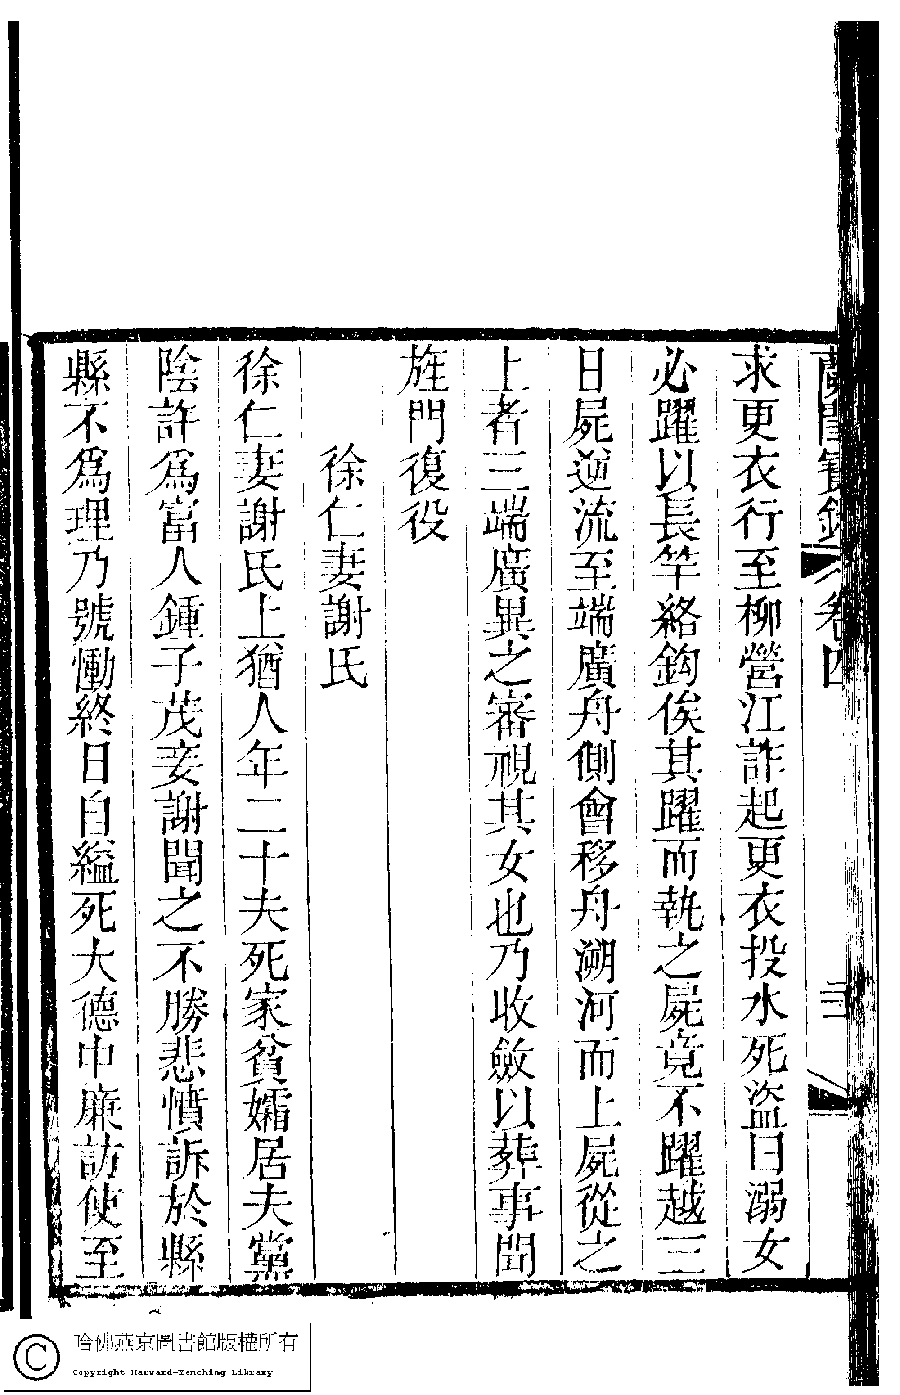 蘭閨寶錄 卷四 三
求更衣行至柳營江詐起更衣投水死盜曰溺女
必躍以長竿絡鈎俟其躍而執之屍竟不躍越三
日屍逆流至端廣舟側會移舟溯河而上屍從之
上者三端廣異之審視其女也乃收斂以葬事聞
旌門復役
徐仁妻謝氏
徐仁妻謝氏上猶人年二十夫死家貧孀居夫黨
陰許爲富人鍾子茂妾謝聞之不勝悲憤訴於縣
縣不爲理乃號慟終日自縊死大德中廉訪使至
哈佛燕京圖書館版權所有
Copyright Harvard-Yenching Library